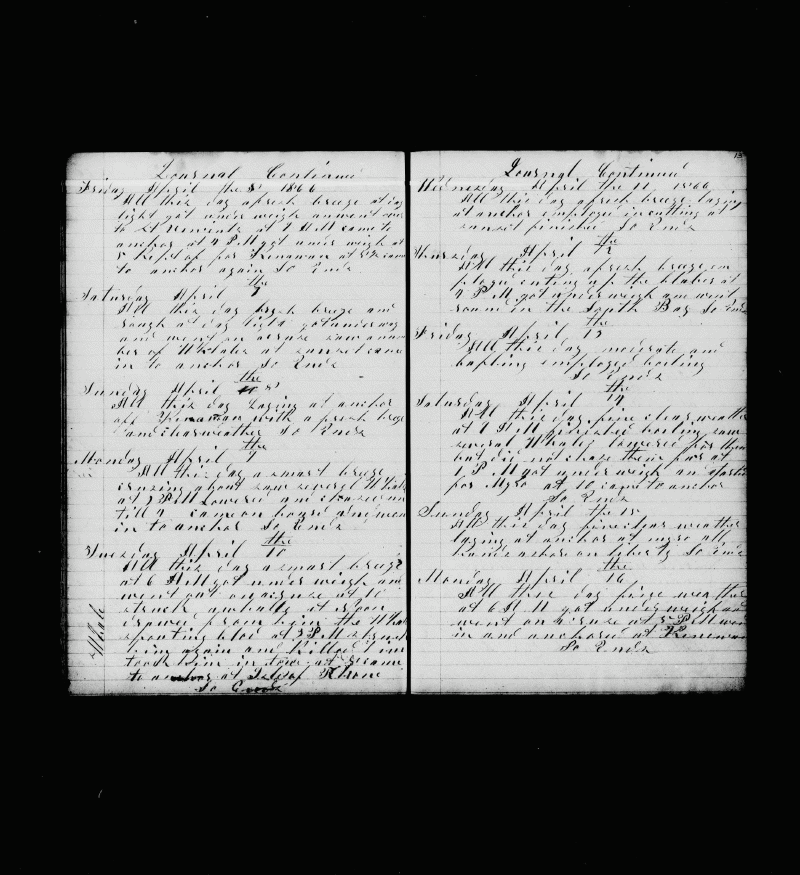 Journal Continued
Friday April the 6 1866
All this day a fresh breeze at day
light got under weigh and went over
to St Vincents at 9 AM came to
anchor at 4 PM got under weigh at
5 kept of for at came
to anchor again So Ends
Saturday April the 7
All this day fresh breeze and
rough at day light got under way
and went on a cruse saw a num
ber of Whales at sunset came
in to anchor So Ends
Sunday April the 8
All this day laying at anchor
off with a fresh breeze
and clear weather So Ends
Monday April the 9
All this day a smart breeze
cruzing about saw several Whales
at 2 PM Lowered and chased
till 4 came on board and went
in to anchor So Ends
Tuesday April the 10
All this day a smart breeze
at 6 AM got under weigh and
went out on a cruse at 10
struck a whale at noon
drawed from him the Whale
spouting blod at 3 PM struck
him again and killed him
took him in tow at came
to anchor at Isle of Rhone
So Ends
Whale
13
Journal Continued
Wednesday April the 11 1866
All this day a fresh breeze laying
at anchor employed in cutting at
sunset finished So Ends
Thursday April the 12
All this day a fresh breeze em
ployed cuting up the blaber at
4 PM got under weigh and went
round in the South Bay So Ends
Friday April the 13
All this day moderate and
baffling employed boiling
So Ends
Saturday April the 14
All this day fine clear weather
at 8 AM finished boiling saw
several Whales lowered for them
but did not chase them far at
1 PM got under weigh and started
for Myro at 10 came to anchor
So Ends
Sunday April the 15
All this day fine clear weather
laying at anchor at myro all
hands ashore on liberty So Ends
Monday April the 16
All this day fine weather
at 6 AM got under weigh and
went on a cruze at 5 PM went
in and anchored at
So Ends